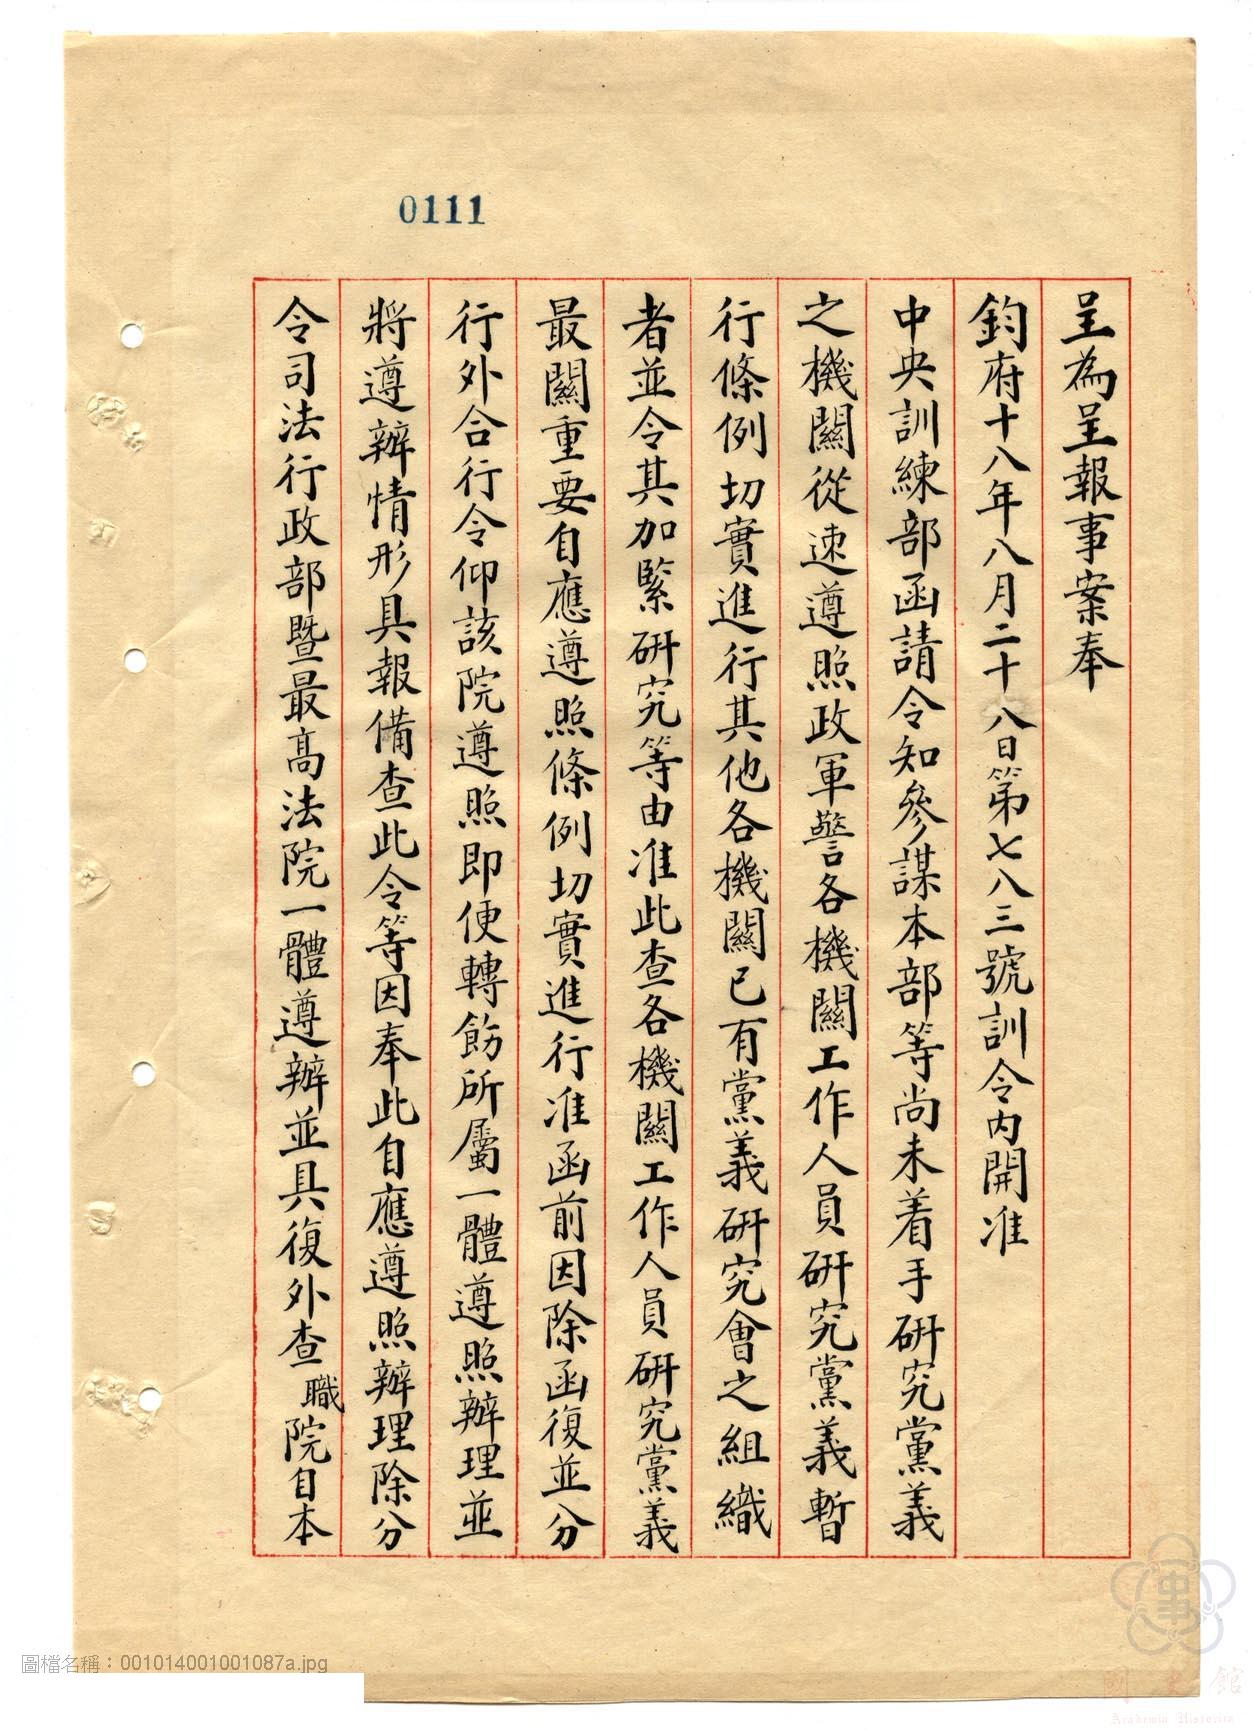 0111
呈為呈報事案奉
鈞府十八年八月二十八日第七八三號訓令內開准
中央訓練部函請令知參謀本部等尚未着手研究黨義
之機關從速遵照政軍警各機關工作人員研究黨義暫
行條例切實進行其他各機關已有黨義研究會之組織
者並令其加緊研究等由准此查各機關工作人員研究黨義
最關重要自應遵照條例切實進行准函前因除函復並分
行外合行令仰該院遵照即便轉飭所屬一體遵照辦理並
將遵辦情形具報備查此令等因奉此自應遵照辦理除分
令司法行政部暨最高法院一體遵辦並具復外查職院自本
國史館
Academia Historica
圖檔名稱：001014001001087a.jpg